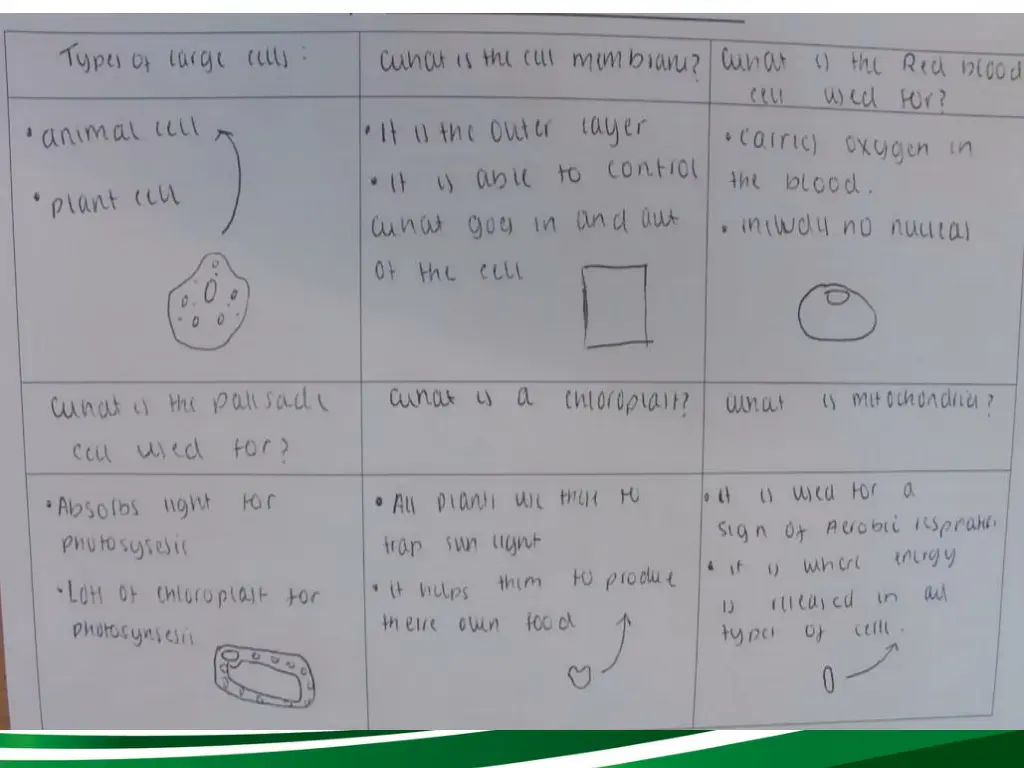 Types of large cells:
• animal cell
• plant cell
What is the cell membrane?
• It is the outer layer
• It is able to control
what goes in and out
of the cell
What is the Red blood
cell used for?
• Carries oxygen in
the blood.
• includes no nucleas
What is the palisade
cell used for?
• Absorbs light for
photosysesis
• Lots of chloroplast for
photosynsesis
What is a chloroplast?
• All plants use these to
trap sun light
• It helps them to produce
theire own food
What is mitochondria?
• it is used for a
sign of Aerobic
• it is where energy
is released in all
types of cells.